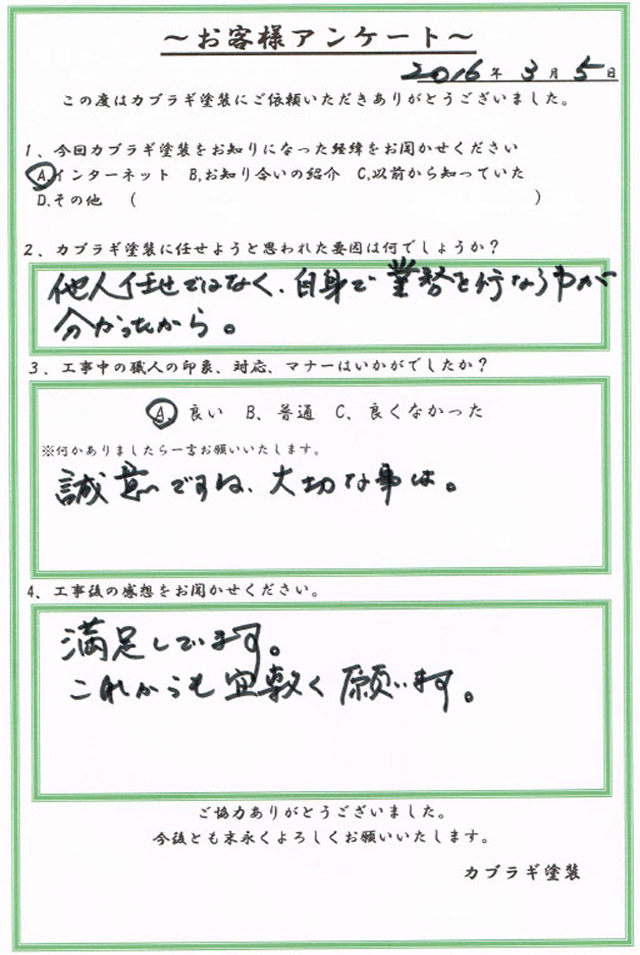 ～お客様アンケート～
2016年 3月 5日
この度はカブラギ塗装にご依頼いただきありがとうございました。
1、今回カブラギ塗装をお知りになった経緯をお聞かせください
A,インターネット B,お知り合いの紹介 C,以前から知っていた
D,その他 ( )
2、カブラギ塗装に任せようと思われた要因は何でしょうか？
他人任せではなく、自身で業務を行なう事が
分かったから。
3、工事中の職人の印象、対応、マナーはいかがでしたか？
A、良い B、普通 C、良くなかった
※何かありましたら一言お願いいたします。
誠意ですね、大切な事は。
4、工事後の感想をお聞かせください。
満足しています。
これからも宜敷く願います。
ご協力ありがとうございました。
今後とも末永くよろしくお願いいたします。
カブラギ塗装